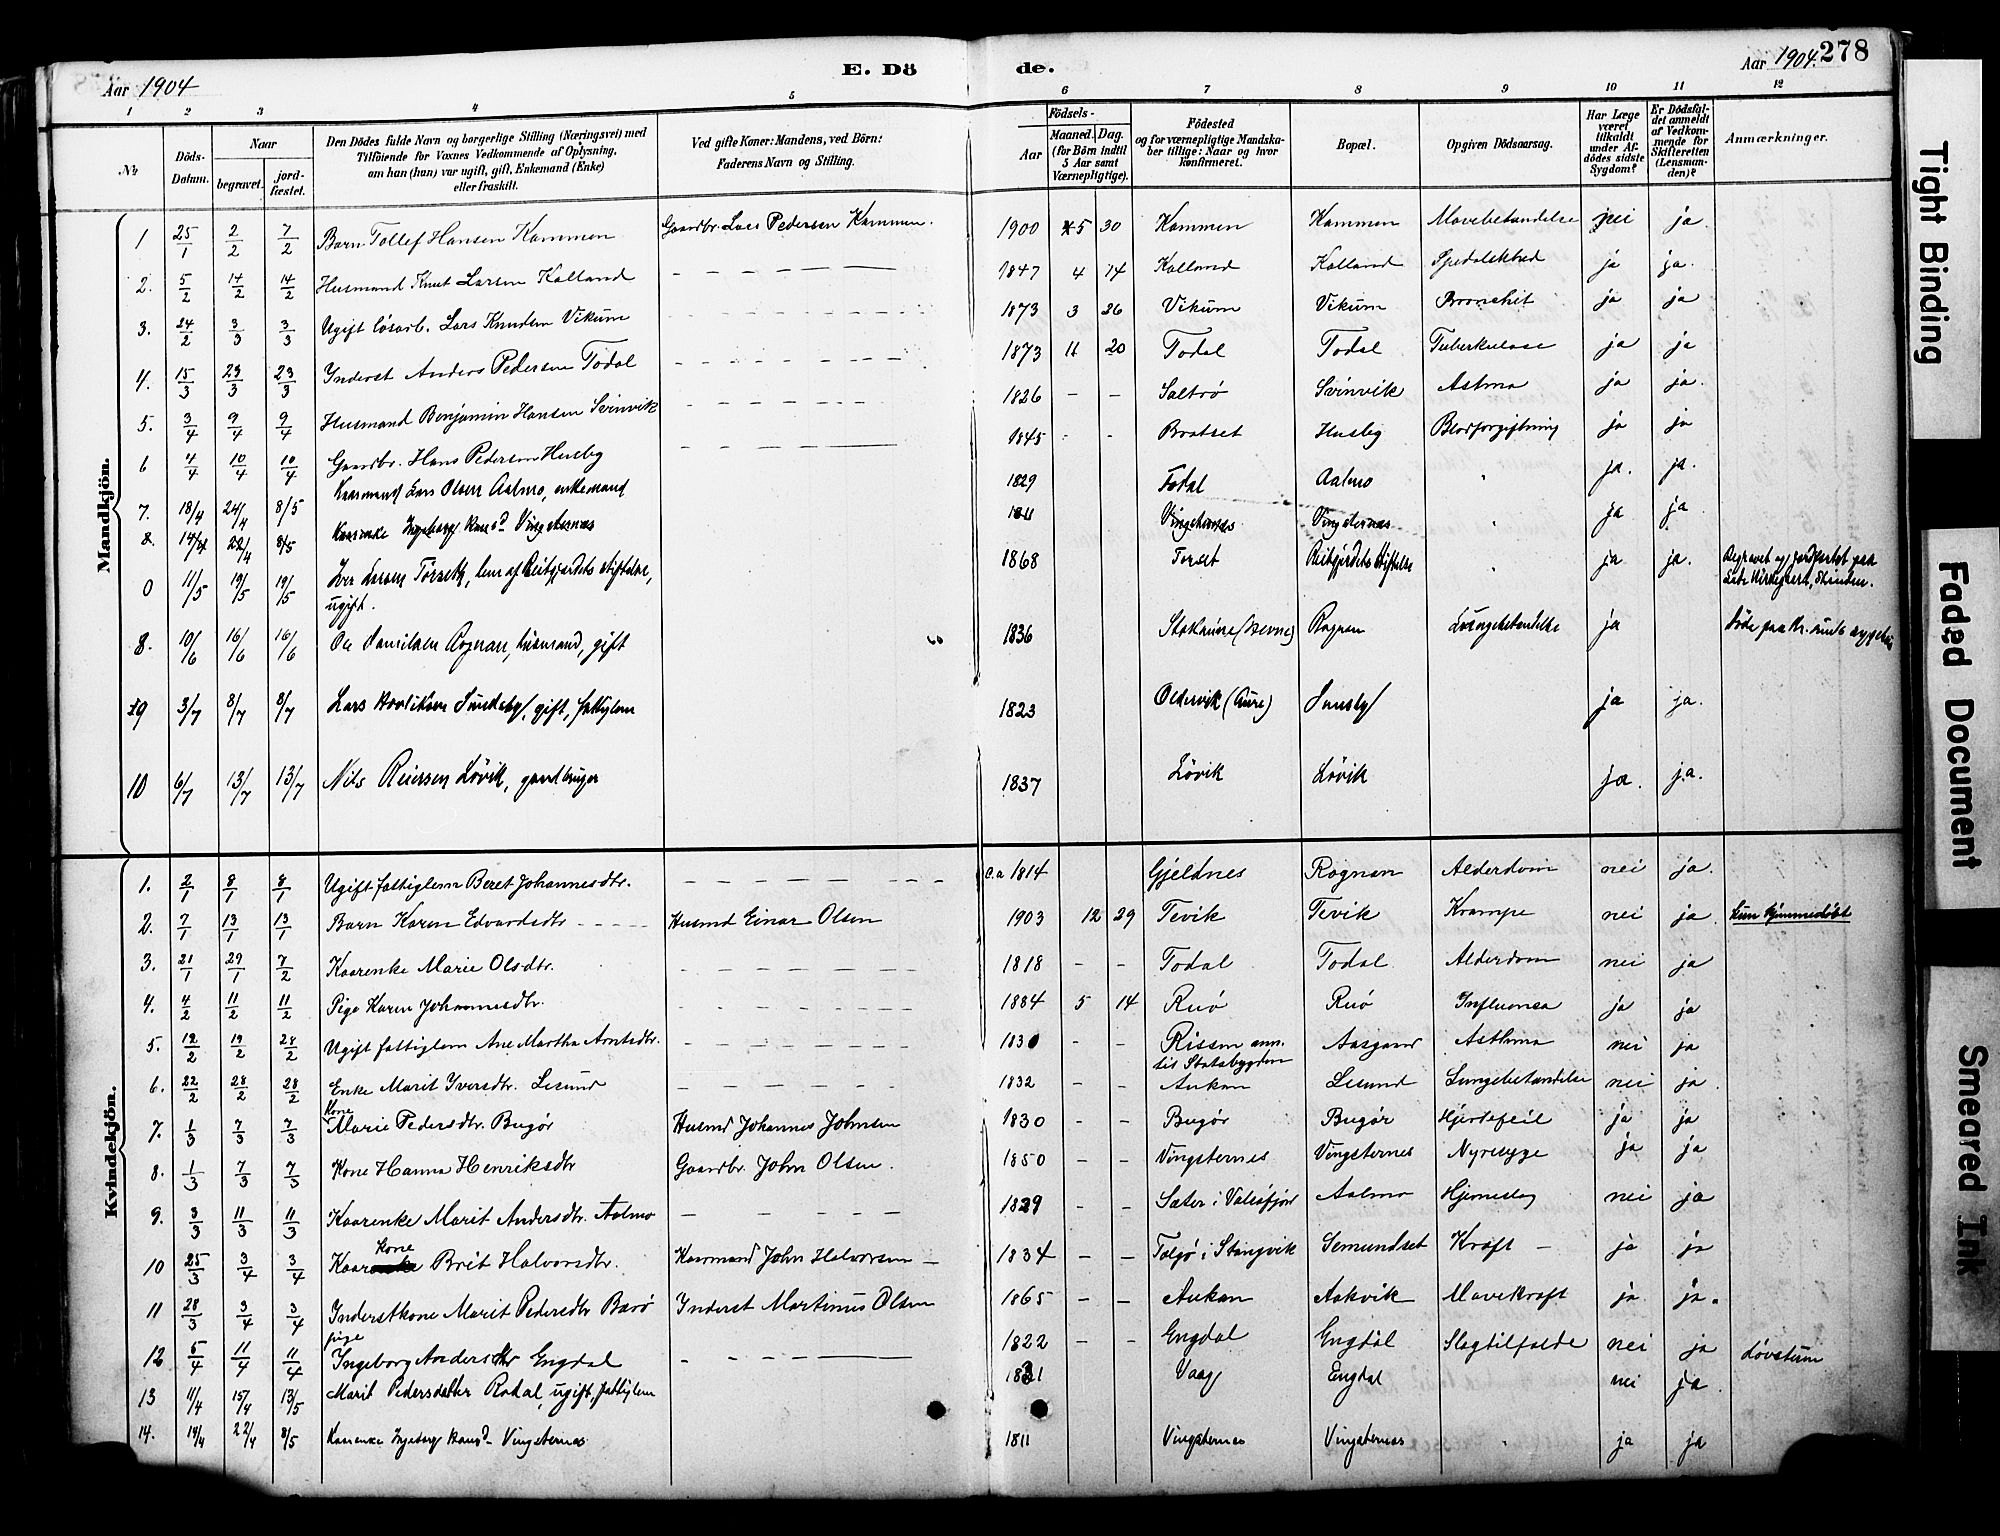 Aar 1904
E. Dö de.
Aar 1904. 278
1 2 3 4 5 6 7 8 9 10 11 12
No.
Döds-Datum.
Naar
begravet.
jord-fæstet.
Den Dödes fulde Navn og borgerlige Stilling (Næringsvei) med
Tilföiende for Voxnes Vedkommende af Oplysning,
om han (hun) var ugift, gift, Enkemand (Enke)
eller fraskilt.
Ved gifte Koner: Mandens, ved Börn:
Faderens Navn og Stilling.
Födsels-
Aar
Maaned. Dag.
(for Börn indtil
5 Aar samt
Værnepligtige).
Födested
og for værnepligtige Mandska-
ber tillige: Naar og hvor
konfirmeret.
Bopæl.
Opgiven Dödsaarsag.
Har Læge
været
tilkaldt
under Af-
dödes sidste
Sygdom?
Er Dödsfal-
det anmeldt
af Vedkom-
mende for
Skifteretten
(Lensman-
den)?
Anmærkninger.
Mandkjön.
1 25/1 2/2 7/2 Barn Tollef Hansen Kammen Gaardbr. Lars Pedersen Kammen. 1900 5 30 Kammen Kammen Mavebetændelse nei ja.
2. 5/2 14/2 14/2 Husmand Knut Larsen Kalland 1847 4 14 Kalland Kalland Spedalskhed ja ja.
3. 24/2 3/3 3/3 Ugift løsarb. Lars Knudsen Vikum 1873 3 26 Vikum Vikum Bronchit ja ja
4. 15/3 23/3 23/3 Inderst Anders Pedersen Todal 1873 11 20 Todal Todal Tuberkulose ja ja
5. 3/4 9/4 9/4 Husmand Benjamin Hansen Svinvik 1826 - - Saltrø Svinvik Astma ja ja.
6 4/4 10/4 10/4 Gaardbr. Hans Pedersen Husby 1845 - - Bratset Husby Blodforgiftning ja ja
7. 18/4 24/4 8/5 Kaarmand Lars Olsen Aalmo, enkemand 1829 Todal Aalmo " ja. ja.
8. 14/4 22/4 8/5 Kaarenke Ingeborg Hansd. Vingsternes 1811 Vingsternes Vingsternes " ja ja.
0 11/5 19/5 19/5 Iver Larsen Torseth, lem af Reitgjerdets stiftelse, ugift. 1868 Torset Reitgjerdets Stiftelse ja ja. Begravet og jordfæstet paa
Lade Kirkegaard, Strinden.
8. 10/6 16/6 16/6 Ole Danielsen Rognan, husmand, gift 1836 Stokøure (Hevne) Rognan Lungebetændelse ja Døde paa Kr.sunds sygehus
9 3/7 8/7 8/7 Lars Sundsby, gift, fattiglem 1823 Oldervik (Aure) Sunsby ja ja.
10 6/7 13/7 13/7 Nils Reiersen Lövik, gaardbruger 1837 Lövik Lövik ja. ja.
Kvindekjön.
1. 2/1 8/1 8/1 Ugift fattiglem Beret Johannesdtr. c.a 1814 Gjeldnes Rognan Alderdom nei ja.
2. 7/1 13/1 13/1 Barn Karen Edvardsdtr Husmd Einar Olsen 1903 12 29 Tevik Tevik Krampe nei ja. Kun hjemmedöbt
3. 21/1 29/1 7/2 Kaarenke Marie Olsdtr. 1818 - - Todal Todal Alderdom nei ja
4. 4/2 11/2 11/2 Pige Karen Johannesdtr. 1884 5 14 Ruö Ruö Influensa ja ja
5. 12/2 19/2 28/2 Ugift fattiglem Ane Martha Arntsdtr. 1830 - - Rissen ann.
til Statsbygden Aasgaard Asthma nei ja
6. 22/2 28/2 28/2 Enke Marit Iversdtr. Lesund 1832 - - Aukan Lesund Lungebetændelse nei ja.
7. 1/3 7/3 7/3 Kone Marie Pedersdtr. Bugør Husmd Johannes Johnsen 1830 - - Bugør Bugør Hjertefeil ja ja
8. 1/3 7/3 7/3 Kone Hanna Henriksdtr Gaardbr. John Olsen. 1850 - - Vingsternes Vingsternes Nyresyge ja ja
9. 3/3 11/3 11/3 Kaarenke Marit Andersdtr. Aalmo 1829 - - Sæter i Valsøfjord Aalmo Hjerneslag nei ja
10 25/3 3/4 3/4 Kaarkone Brit Halvorsdtr. Kaarmand John Halvorsen 1834 - - Talgø i Stangvik Semundset Kræft ja ja
11 28/3 3/4 3/4 Inderstkone Marit Pedersdtr Barø Inderst Martinus Olsen 1865 - - Aukan Aakvik Mavekræft ja ja.
12 5/4 11/4 11/4 pige Ingeborg Andersdtr Engdal 1822 - - Engdal Engdal Slagtilfælde nei ja døvstum
13 4/4 15/4 13/5 Marit Pedersdatter Rodal, ugift, fattiglem 1831 Vaag Engdal nei ja.
14. 14/4 22/4 8/5 Kaarenke Ingeborg Hansd. Vingsternes 1811 Vingsternes Vingsternes " ja ja
Tight Binding
Faded Document
Smeared Ink